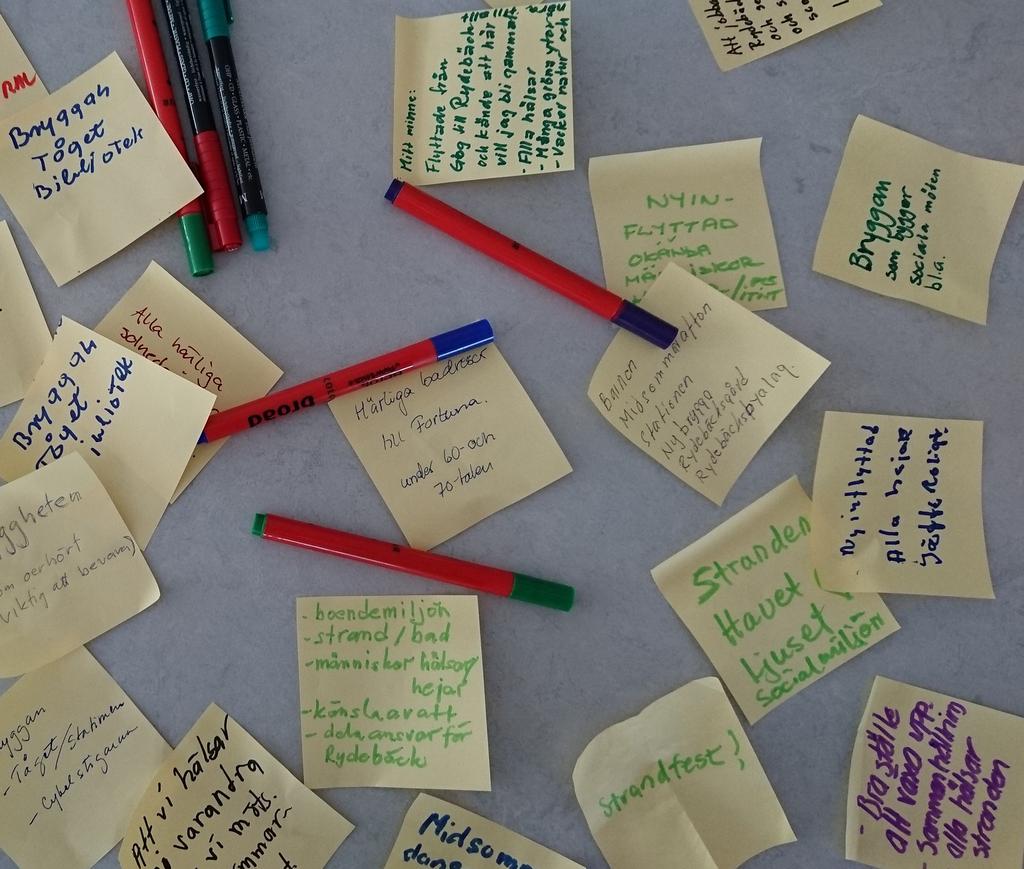 RM
Bryggan
Tåget
Bibliotek
Mitt minne:
Flyttade från
Gbg till Rydebäck
och kände att här
vill jag bli gammal
- Alla hälsar
- Många gröna ytor
- Vacker natur och
Att
Rydebäck
och
NYIN-
FLYTTAD
OKÄNDA
MÄNNISKOR
Bryggan
som bygger
sociala möten
bl.a.
Alla härliga
Bryggan
Tåget
Härliga badresor
till Fortuna.
under 60-och
70-talen
Banken
Midsommarafton
Stationen
Ny brygga
Rydebäcksgård
Rydebäcksbyalag.
Nyinflyttad
Alla hejar
Jätteroligt
ggheten
om oerhört
viktig att bevara)
Stranden
Havet
Ljuset
socialmiljön
- boendemiljön
- strand/bad
- människor hälsar/
hejar
- känsla av att
- dela ansvar för
Rydebäck
yggan
- Tåget/stationen
- Cykelstigarna
Att vi hälsar
varandra
vi möts.
Strandfest!
Midsom
dans
- Bra ställe
att växa upp.
- Sammanhållning
alla hälsar
stranden